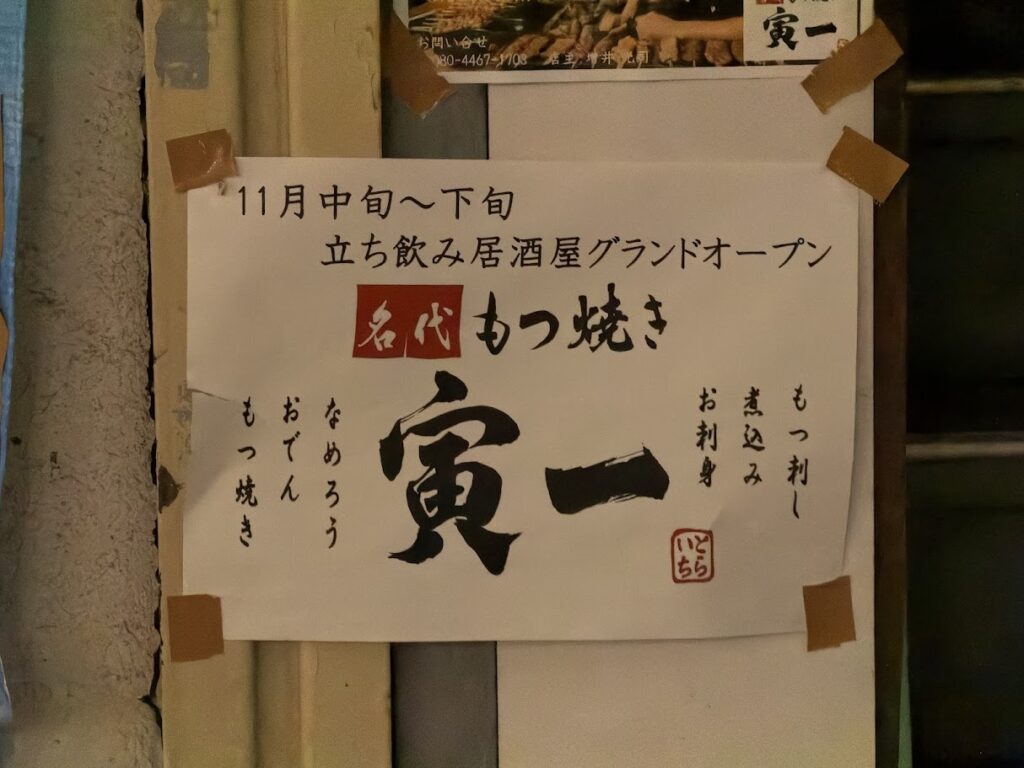 お問い合せ
080-4467-1703 店主:増井
寅一
11月中旬〜下旬
立ち飲み居酒屋グランドオープン
名代 もつ焼き
寅一
もつ刺し
煮込み
お刺身
なめろう
おでん
もつ焼き
とら
いち